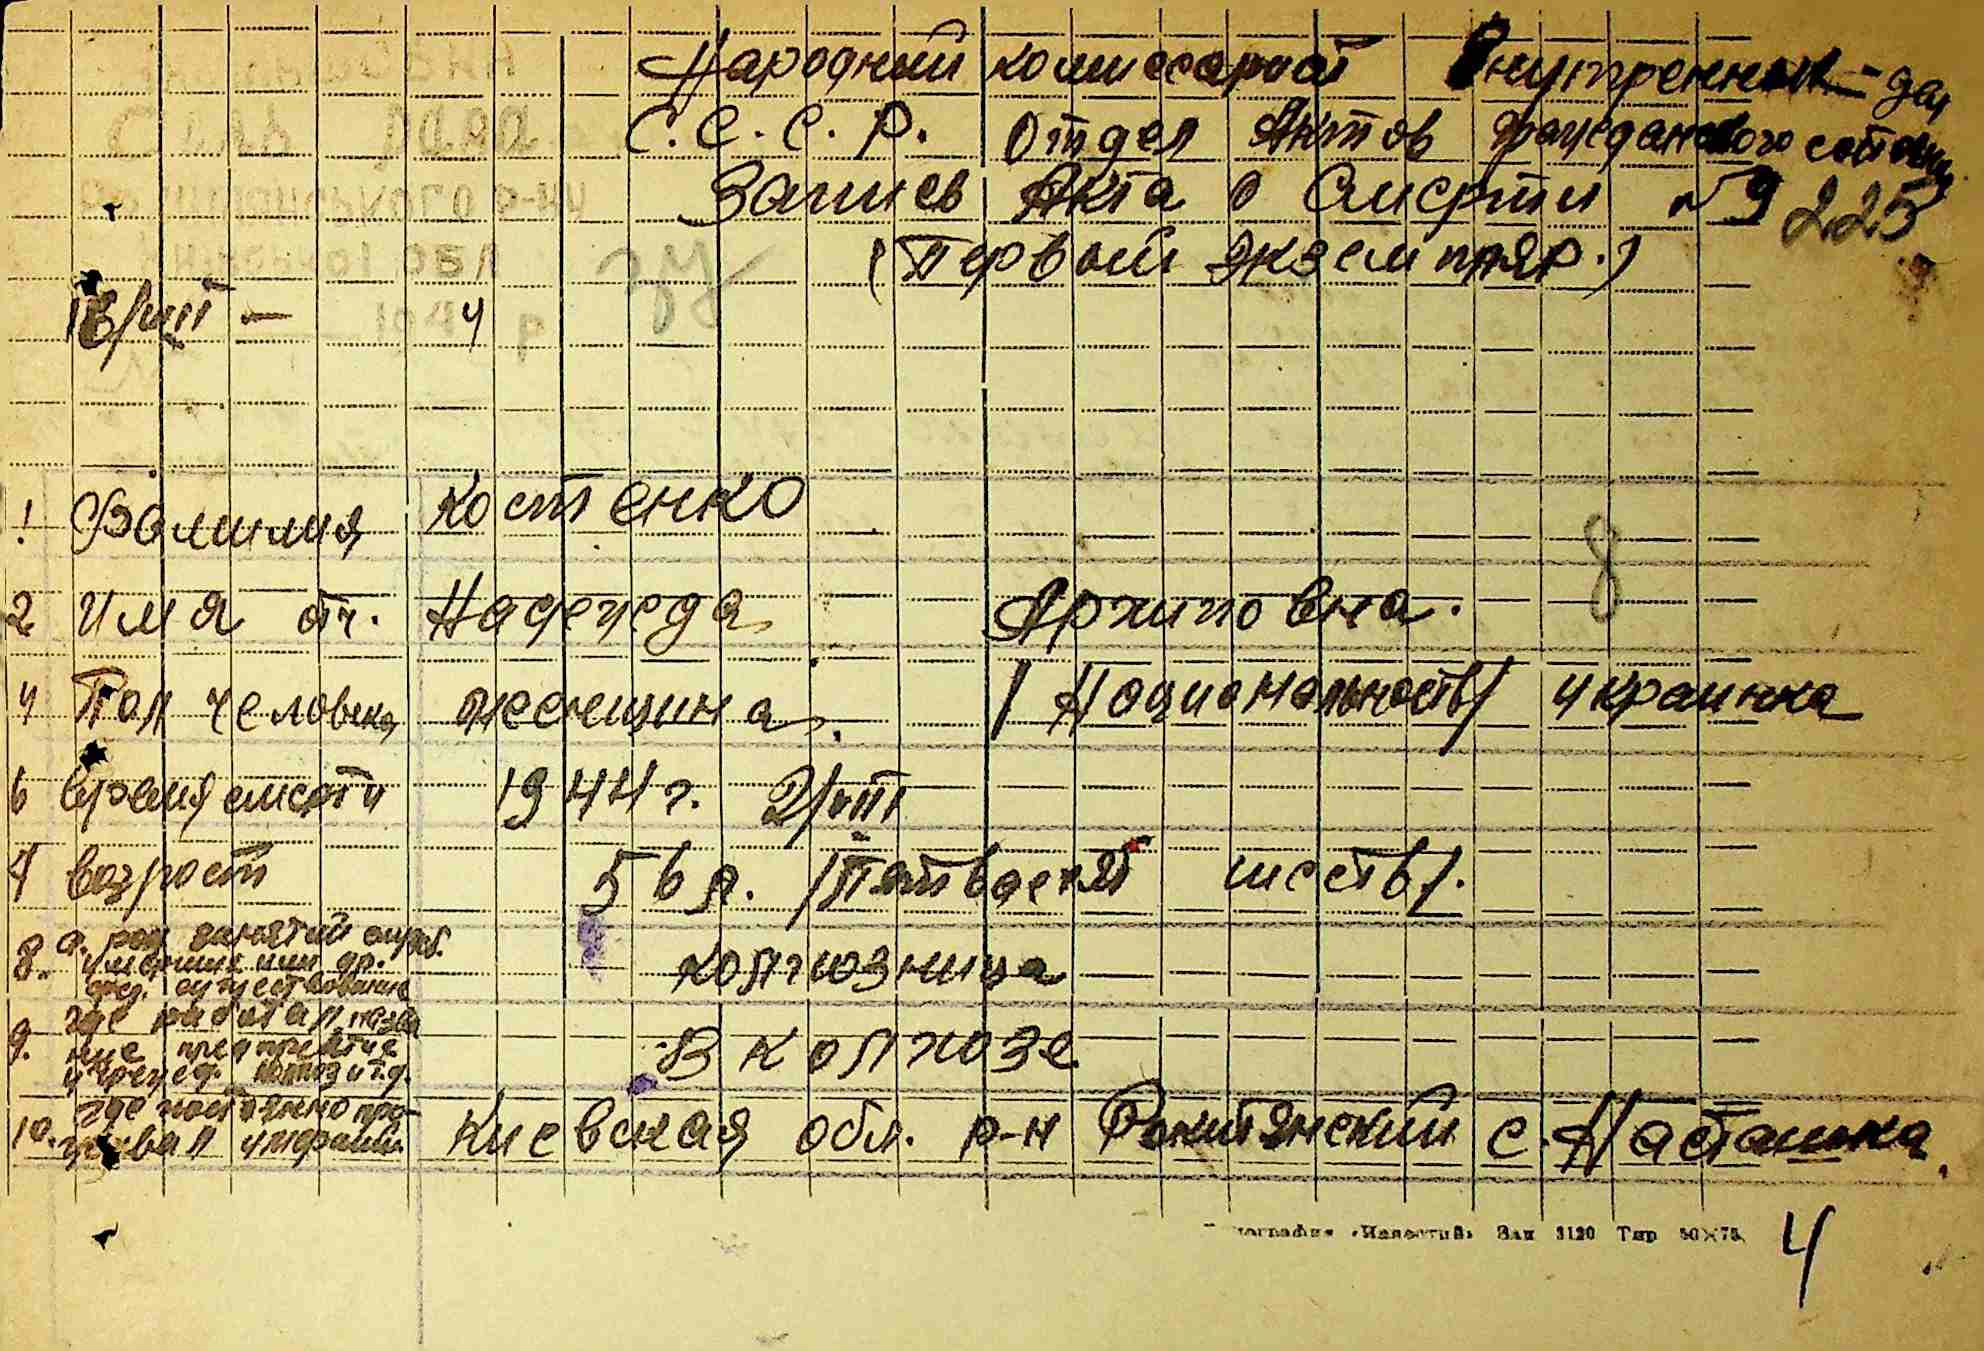 Народний комиссариат Внутренних дел
С.С.С.Р. Отдел Актов гражданского состояния
Запись Акта о Смерти № 9 225
(Первый экземпляр.)
18/VIII — 4
1 Фамилия Костенко
8
2 Имя отч. Надежда Архиповна.
4 Пол человека женщина. / Национальность/ украинка
6 время смерти 1944 г. 2/VIII
7 возраст 56 л. /Пятьдесят шесть/.
8. а. род занятий
умерших или др.
сред. существование колхозница
9. где работал, назва
ние предприятие
учрежд. колхоз и т.д. в колхозе
10. где постоянно про-
живал умерший Киевская обл. р-н Рокитянский с. Насташка.
Типография «Известий» Зак 3120 Тир 50×75
4